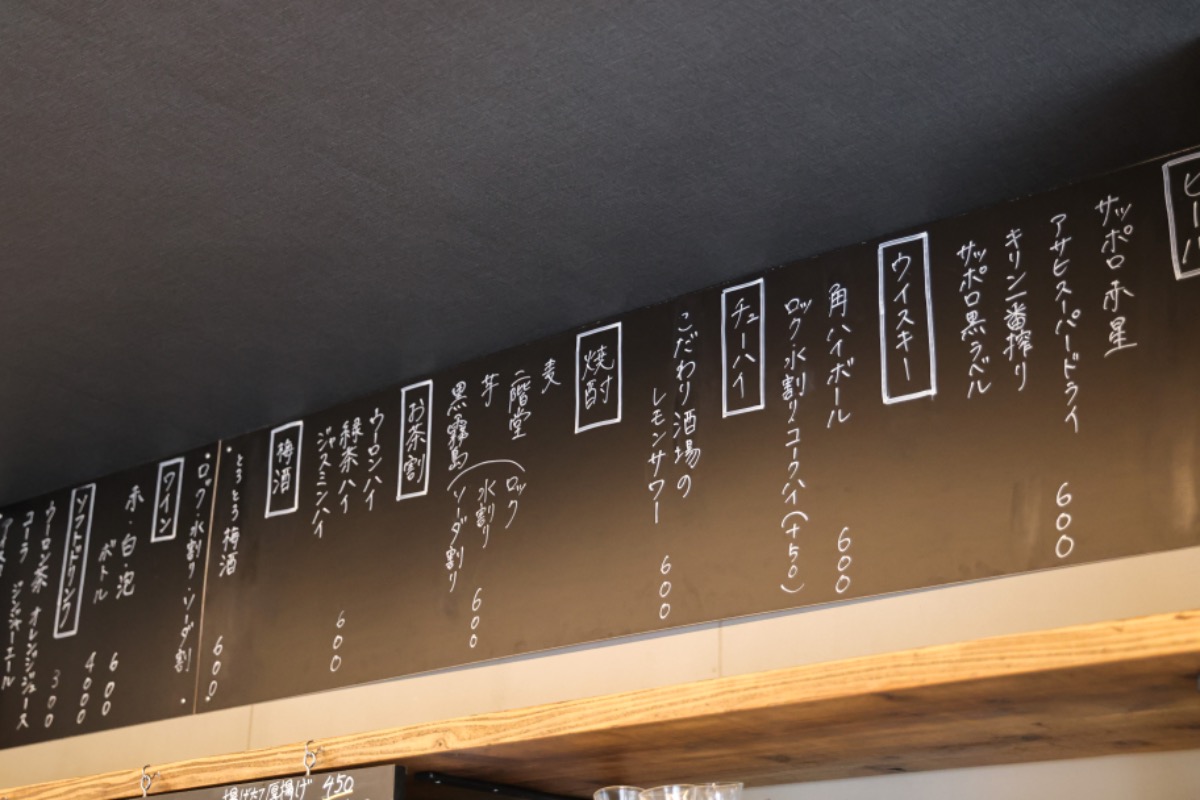 ビール
サッポロ赤星
アサヒスーパードライ 600
キリン一番搾り
サッポロ黒ラベル
ウイスキー
角ハイボール 600
ロック・水割り・コークハイ(+50)
チューハイ
こだわり酒場の
レモンサワー 600
焼酎
麦
二階堂 (ロック
芋 水割り 600
黒霧島 ソーダ割り
お茶割
ウーロンハイ
緑茶ハイ 600
ジャスミンハイ
梅酒
・とろとろ梅酒 600・
・ロック・水割り・ソーダ割・
ワイン
赤・白・泡 600
ボトル 4000
ソフトドリンク
ウーロン茶 300
コーラ オレンジジュース
ジンジャーエール
揚げたて厚揚げ 450